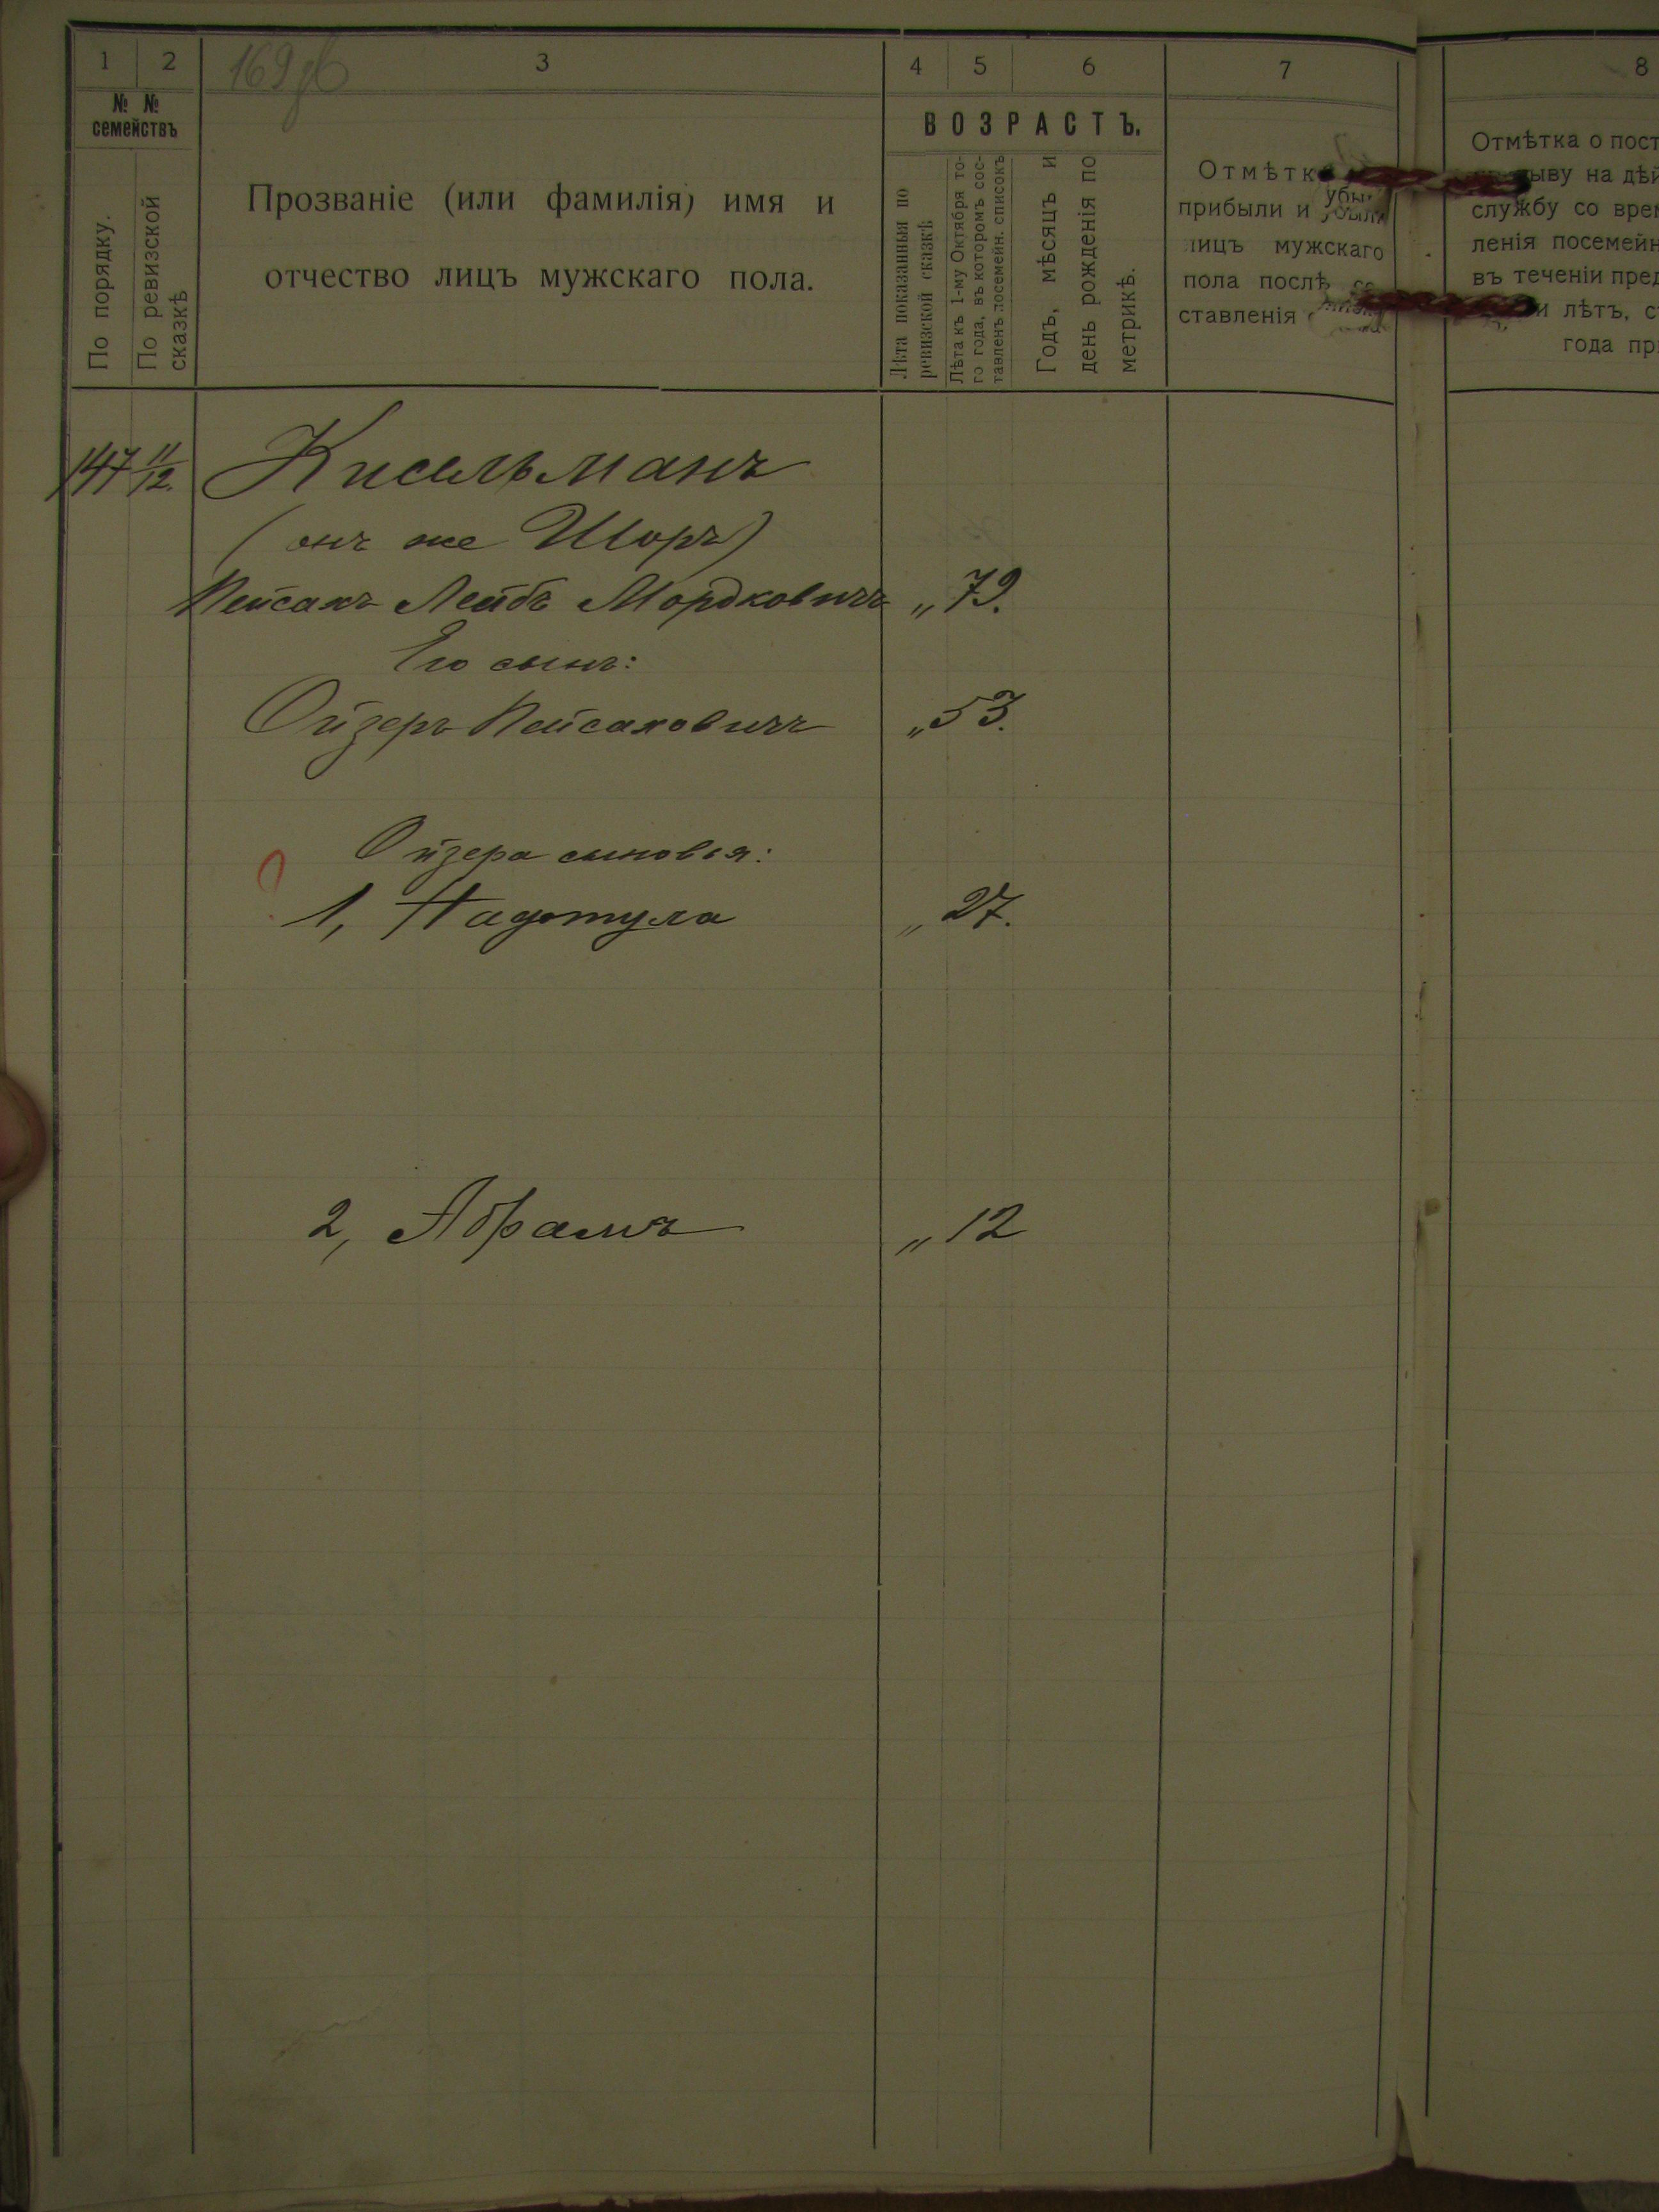 1 2 3 4 5 6 7 8
169 об
№ № семействъ
По порядку.
По ревизской сказкѣ
Прозваніе (или фамилія) имя и
отчество лицъ мужскаго пола.
ВОЗРАСТЪ.
Лѣта показанныя по
ревизской сказкѣ
Лѣта къ 1-му Октября то-
го года, въ которомъ сос-
тавленъ посемейн. списокъ
Годъ, мѣсяцъ и
день рожденія по
метрикѣ.
Отмѣтк
прибыли и убыли
лицъ мужскаго
пола послѣ со
ставленія
Отмѣтка о пост
ыву на дѣй
службу со врем
ленія посемейн
въ теченіи пред
и лѣтъ, с
года пр
147 11/12. Кисельманъ
(онъ же Шоръ)
Пейсахъ Лейбъ Мордковичъ „ 79.
Его сынъ:
Ойзеръ Пейсаховичъ „ 53.
Ойзера сыновья:
1, „ 27.
2, Абрамъ „ 12